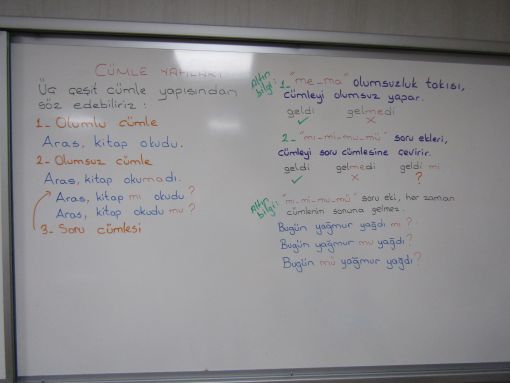 CÜMLE YAPILARI
Üç çeşit cümle yapısından
söz edebiliriz :
1- Olumlu cümle
Aras, kitap okudu.
2- Olumsuz cümle
Aras, kitap okumadı.
Aras, kitap mı okudu ?
Aras, kitap okudu mu ?
3- Soru cümlesi
Altın bilgi:
1- "me-ma" olumsuzluk takısı,
cümleyi olumsuz yapar.
geldi gelmedi
✓ ✗
2- "mı-mi-mu-mü" soru ekleri,
cümleyi soru cümlesine çevirir.
geldi gelmedi geldi mi
✓ ✗ ?
Altın bilgi:
"mı-mi-mu-mü" soru eki, her zaman
cümlenin sonuna gelmez.
Bugün yağmur yağdı mı ?
Bugün yağmur mu yağdı?
Bugün mü yağmur yağdı?